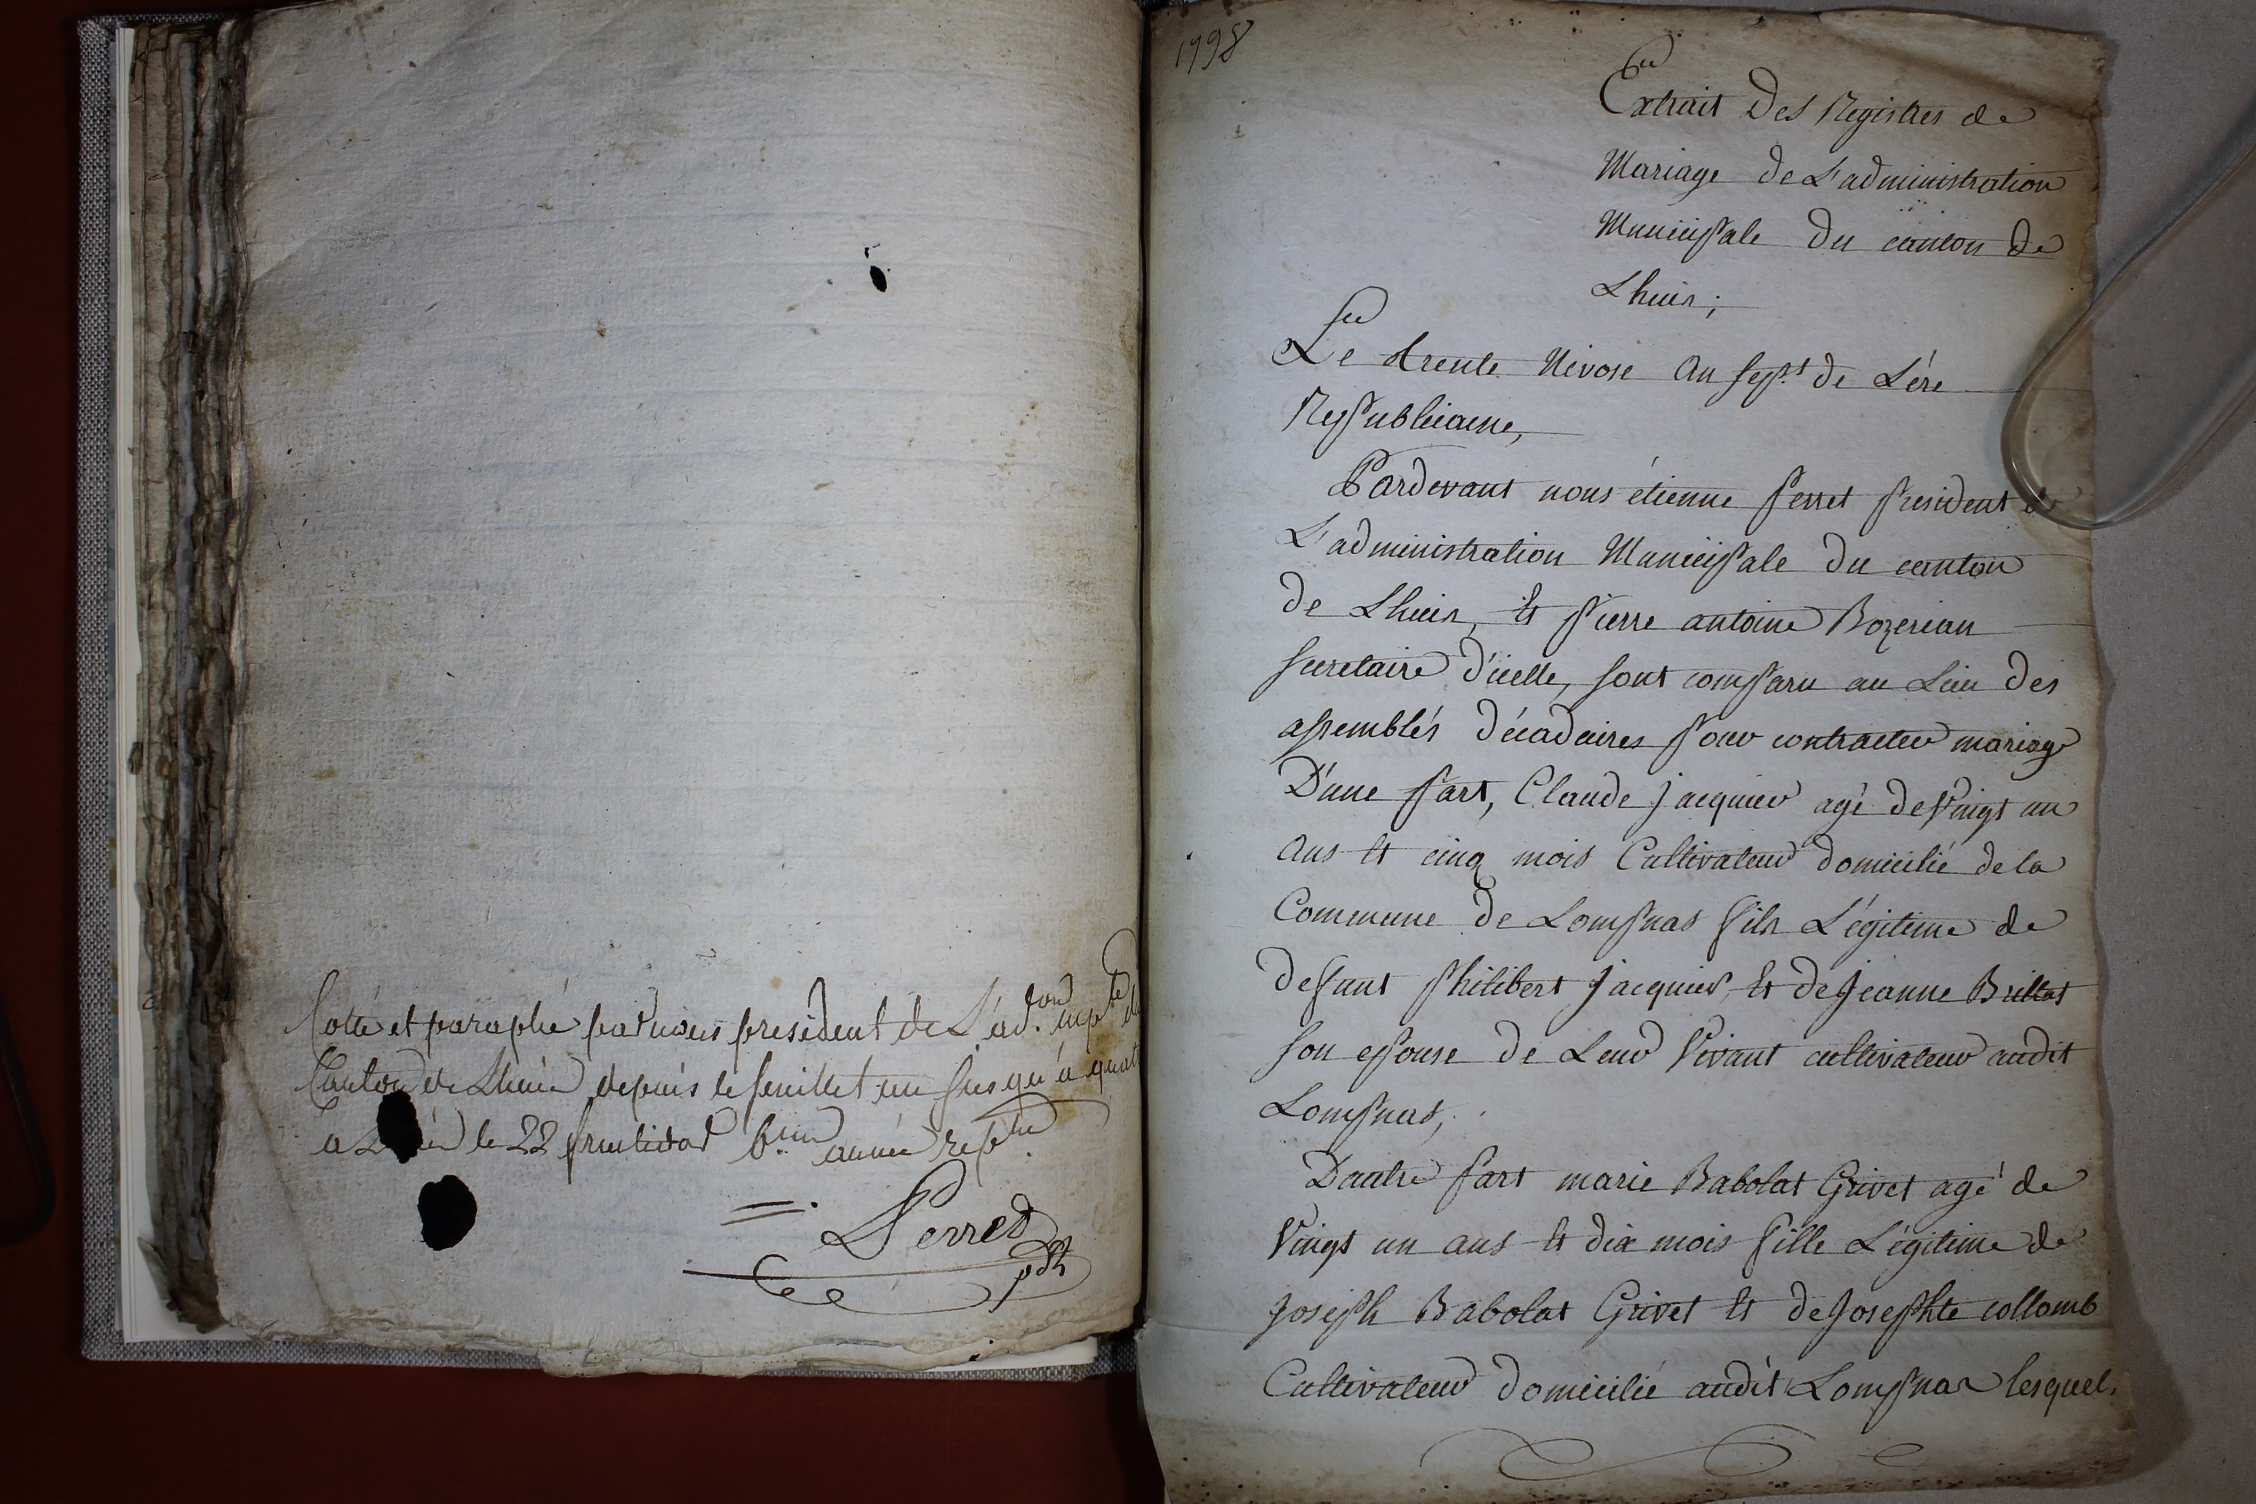 Cotté et paraphé par nous president de L'ad.on mp.le du
Canton de Lhuis depuis le feuillet un jusqu'a quatre
a le 22 fructidor 6.me année rep.ne
Perret
pdt
1798
Extrait Des Registres de
Mariage De L'administration
Municipale Du canton De
Lhuis ;
Le trente Nivose an sept de L'ére
Republicaine,
Pardevant nous étienne Perret President de
L'administration Municipale Du canton
De Lhuis, Et Pierre antoine Bozerian
secretaire D'icelle, sont comparu au Lieu Des
assemblés Décadaires Pour contracter mariage
D'une Part, Claude jacquier agé De Vingt un
ans Et cinq mois Cultivateur Domicilié De la
Commune De Lompnas Fils Légitime de
Defunt Philibert jacquier, Et De jeanne Brillat
son epouse De Leur Vivant cultivateur audit
Lompnas,
Dautre Part marie Babolat Grivet agé de
Vingt un ans Et dix mois Fille Légitime de
joseph Babolat Grivet Et De josephte collomb
Cultivateur Domicilié audit Lompnas lesquel.